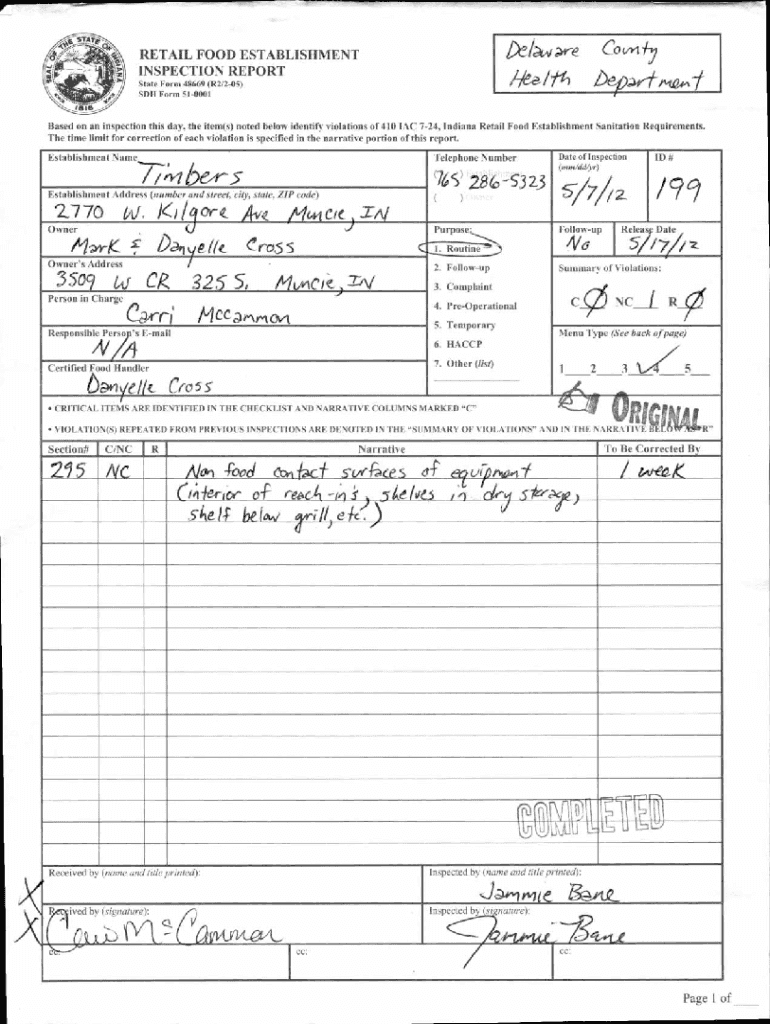 SEAL OF THE STATE OF INDIANA
1816
RETAIL FOOD ESTABLISHMENT
INSPECTION REPORT
State Form 48669 (R2/2-05)
SDH Form 51-0001
Delaware County
Health Department
Based on an inspection this day, the item(s) noted below identify violations of 410 IAC 7-24, Indiana Retail Food Establishment Sanitation Requirements.
The time limit for correction of each violation is specified in the narrative portion of this report.
Establishment Name
Timbers
Telephone Number
(765 286-5323
( )
Date of Inspection
(mm/dd/yr)
5/7/12
ID #
199
Establishment Address (number and street, city, state, ZIP code)
2770 W. Kilgore Ave Muncie, IN
Owner
Mark & Danyelle Cross
Purpose:
1. Routine
2. Follow-up
3. Complaint
4. Pre-Operational
5. Temporary
6. HACCP
7. Other (list)
Follow-up
No
Release Date
5/17/12
Owner's Address
3509 W CR 325 S. Muncie, IN
Summary of Violations:
C 0 NC 1 R 0
Person in Charge
Carri McCammon
Responsible Person's E-mail
N/A
Menu Type (See back of page)
1 2 3 4 5
Certified Food Handler
Danyelle Cross
ORIGINAL
• CRITICAL ITEMS ARE IDENTIFIED IN THE CHECKLIST AND NARRATIVE COLUMNS MARKED "C"
• VIOLATION(S) REPEATED FROM PREVIOUS INSPECTIONS ARE DENOTED IN THE "SUMMARY OF VIOLATIONS" AND IN THE NARRATIVE BELOW AS "R"
Section# C/NC R Narrative To Be Corrected By
295 NC Non food contact surfaces of equipment 1 week
(interior of reach-in's, shelves in dry storage,
shelf below grill, etc.)
COMPLETED
Received by (name and title printed):
Inspected by (name and title printed):
Jammie Bane
X
X
Received by (signature):
Carri McCammon
Inspected by (signature):
Jammie Bane
cc:
cc:
cc:
Page 1 of